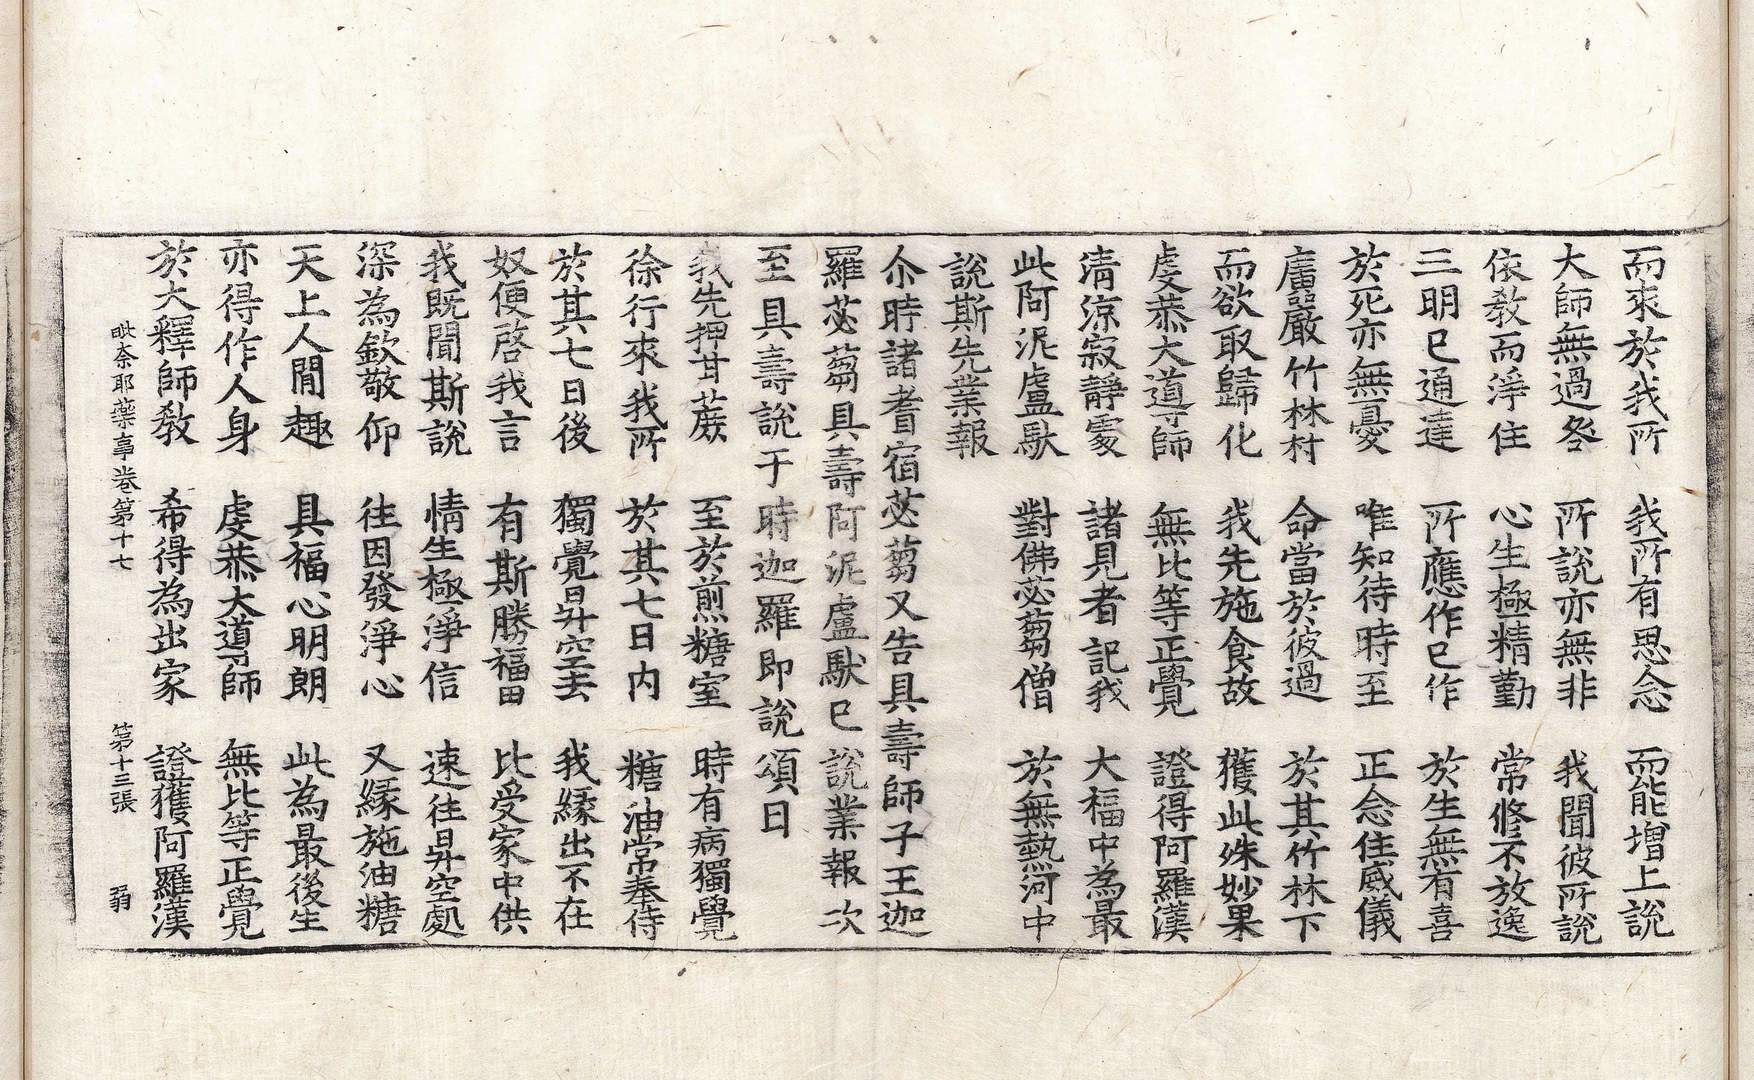 而來於我所　我所有思念　而能增上說
大師無過咎　所說亦無非　我聞彼所說
依教而淨住　心生極精勤　常修不放逸
三明已通達　所應作已作　於生無有喜
於死亦無憂　唯知待時至　正念住威儀
廣嚴竹林村　命當於彼過　於其竹林下
而欲取歸化　我先施食故　獲此殊妙果
虔恭大道師　無比等正覺　證得阿羅漢
清涼寂靜處　諸見者記我　大福中為最
此阿泥盧馱　對佛苾芻僧　於無熱河中
說斯先業報
尒時諸耆宿苾芻又告具壽師子王迦
羅苾芻具壽阿泥盧馱已說業報次
至具壽說于時迦羅即說頌曰
我先押甘蔗　至於煎糖室　時有病獨覺
徐行來我所　於其七日内　糖油常奉侍
於其七日後　獨覺昇空去　我緣出不在
奴便啓我言　有斯勝福田　比受家中供
我既聞斯說　情生極淨信　速往昇空處
深為欽敬仰　往因發淨心　又緣施油糖
天上人閒趣　具福心明朗　此為最後生
亦得作人身　虔恭大道師　無比等正覺
於大釋師教　希得為出家　證獲阿羅漢
毗奈耶藥事卷第十七　第十三張　弱